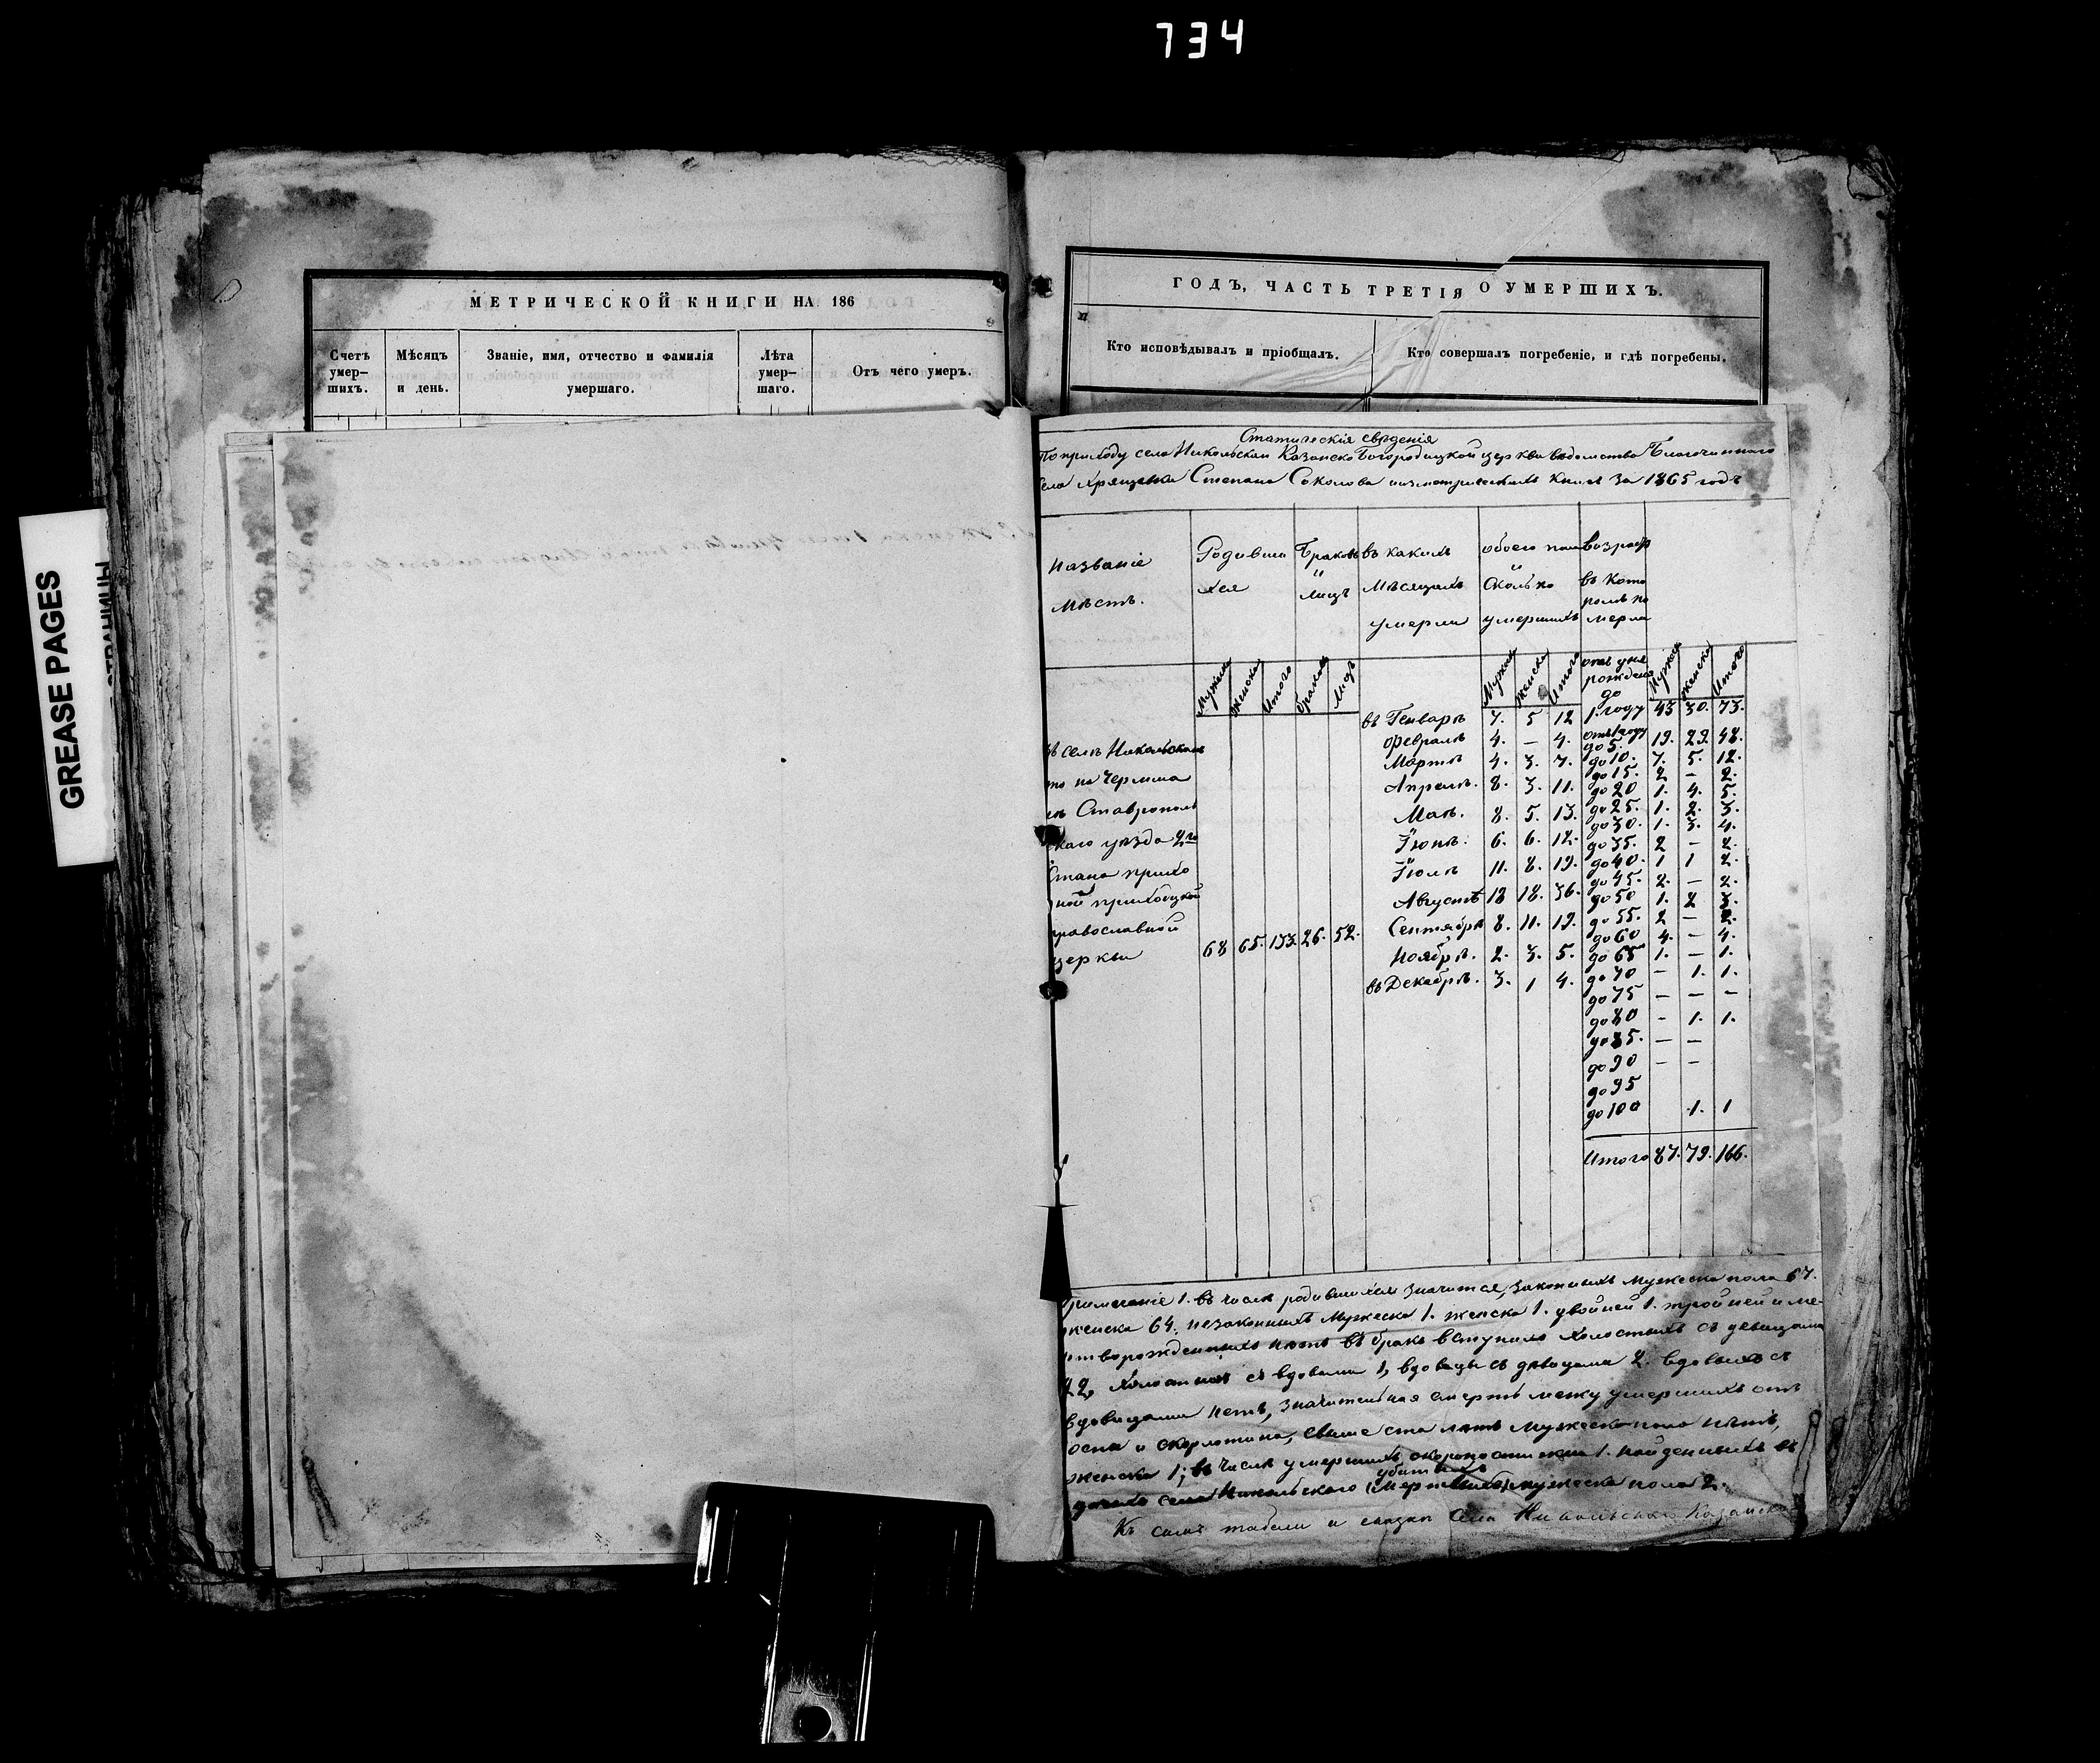 734
GREASE PAGES
СТРАНИЦЫ
МЕТРИЧЕСКОЙ КНИГИ НА 186
Счетъ умер-
шихъ.
Мѣсяцъ
и день.
Званіе, имя, отчество и фамилія
умершаго.
Лѣта
умер-
шаго.
Отъ чего умеръ.
ГОДЪ, ЧАСТЬ ТРЕТІЯ О УМЕРШИХЪ.
Кто исповѣдывалъ и пріобщалъ.
Кто совершалъ погребеніе, и гдѣ погребены.
Статическія сведения
По приходу села Никольскаи Казанско Богородицкой церкви ведомства Благочиннаго
села Хрящевка Степана Соколова из метрическихъ книгъ за 1865 годъ
Названіе
мѣстъ.
Родивши
хся
Браковъ
и
лицъ
въ какихъ
мѣсяцахъ
умерли
обоего пола
и
Сколько
умершихъ
возрастъ
въ кото
ромъ по
мерли
Мужеска
Женска
Итого
браковъ
Лицъ
Мужеска
Женска
Итого
отъ дня
рожденія
до
Мужеска
женска
Итого
въ Генварѣ 7. 5 12 1. году 43 30. 73.
Февралѣ 4. — 4. отъ 1 году до 5. 19. 29. 48.
Мартѣ 4. 3. 7. до 10. 7. 5. 12.
до 15. 2 — 2.
Апрелѣ. 8. 3. 11. до 20 1. 4. 5.
до 25. 1. 2. 3.
Маѣ. 8. 5. 13. до 30. 1. 3. 4.
Іюнѣ. 6. 6. 12. до 35. 2 — 2.
Іюлѣ 11. 8. 19. до 40. 1 1 2.
до 45. 2. — 2.
Августѣ 18 18. 36. до 50 1. 2 3.
Сентябрѣ 8. 11. 19. до 55. 2 — 2.
до 60 4. — 4.
Ноябрѣ. 2. 3. 5. до 65 1. — 1.
въ Декабрѣ. 3. 1 4. до 70 — 1. 1.
до 75 — — —
до 80 — 1. 1.
до 85. — —
до 90 — —
до 95
до 100 1. 1
Итого 87. 79. 166.
въ селѣ Никольскомъ
что на Черемша
нѣ Ставрополь
скаго уезда 2го
Стана прихо
православной
церкви 68 65. 133. 26. 52.
Примечаніе 1. въ числѣ родившихся значится, законныхъ мужеска пола 67.
женска 64. незаконныхъ Мужеска 1. женска 1. двойней 1. тройней и ме-
ртворожденныхъ нетъ въ бракъ вступило холостыхъ съ девицами
22, холостыхъ съ вдовами 1, вдовцы съ девицами 2. вдовыхъ съ
вдовицами нетъ, значительная смерть между умершихъ отъ
оспы и скорлотина, свыше ста летъ мужеска пола нетъ,
женска 1; въ числѣ умершихъ скоропостижно 1. найденныхъ въ
села Никольскаго убитыхъ мужеска пола 2.
Къ сей табели и Села Никольскаго Казанско